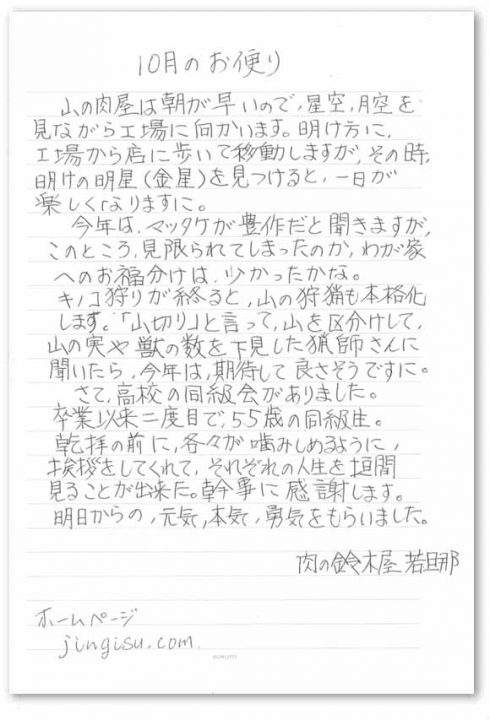 10月のお便り
山の肉屋は朝が早いので,星空,月空を
見ながら工場に向かいます。明け方に,
工場から店に歩いて移動しますが,その時,
明けの明星(金星)を見つけると,一日が
楽しくなりますに。
今年は,マッタケが豊作だと聞きますが,
このところ,見限られてしまったのか,わが家
へのお福分けは,少かったかな。
キノコ狩りが終ると,山の狩猟も本格化
します。「山切り」と言って,山を区分けして,
山の実や獣の数を下見した猟師さんに
聞いたら,今年は,期待して良さそうですに。
さて,高校の同級会がありました。
卒業以来二度目で,55歳の同級生。
乾拝の前に,各々が噛みしめるように,
挨拶をしてくれて,それぞれの人生を垣間
見ることが出来た。幹事に感謝します。
明日からの,元気,本気,勇気をもらいました。
肉の鈴木屋 若旦那
ホームページ
jingisu.com.